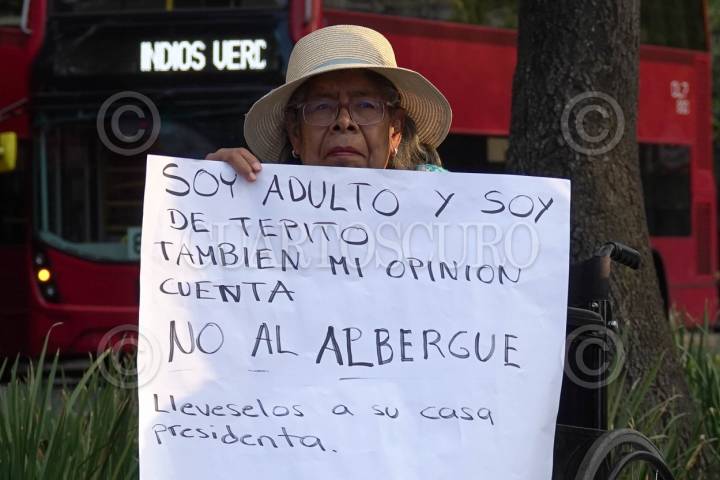 INDIOS VERD
SOY ADULTO Y SOY
DE TEPITO
TAMBIEN MI OPINION
CUENTA
NO AL ALBERGUE
Lleveselos a su casa
presidenta.
CUARTOSCURO